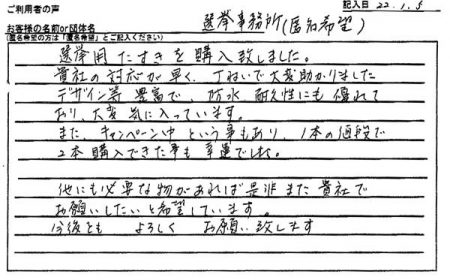 ご利用者の声
記入日 22.1.5
お客様の名前or団体名
(匿名希望の方は「匿名希望」とご記入ください)
選挙事務所(匿名希望)
選挙用たすきを購入致しました。
貴社の対応が早く、丁ねいで大変助かりました
デザイン等 豊富で、防水、耐久性にも優れて
おり、大変気に入っています。
また、キャンペーン中という事もあり、1本の値段で
2本購入できた事も幸運でした。
他にも必要な物があれば是非また貴社で
お願いしたいと希望しています。
今後とも よろしく お願い致します